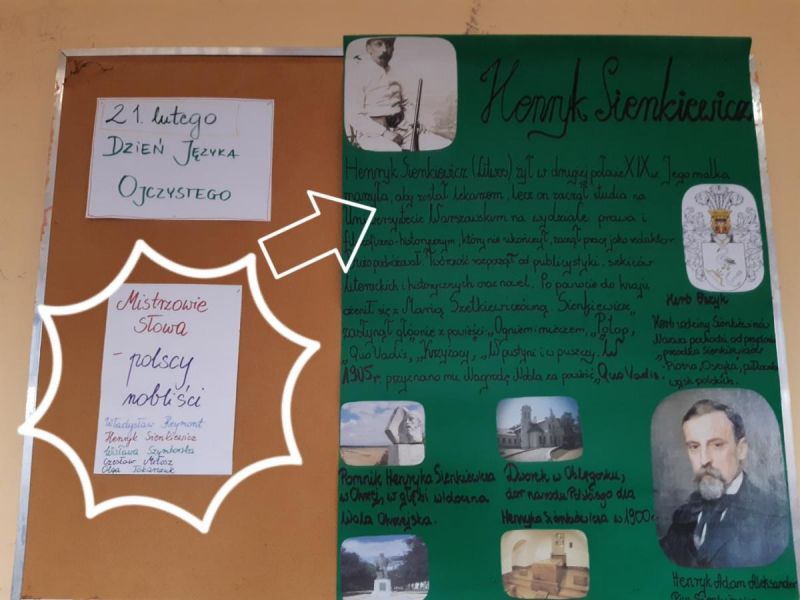 21. lutego
DZIEŃ JĘZYKA
OJCZYSTEGO
Mistrzowie
słowa
- polscy
nobliści
Władysław Reymont
Henryk Sienkiewicz
Wisława Szymborska
Czesław Miłosz
Olga Tokarczuk
Henryk Sienkiewicz
Henryk Sienkiewicz (Litwos) żył w drugiej połowie XIX w. Jego matka
marzyła, aby został lekarzem, lecz on zaczął studia na
Uniwersytecie Warszawskim na wydziale prawa i
filozoficzno-historycznym, których nie ukończył, zaczął pracę jako redaktor
podróżował. Twórczość rozpoczął od publicystyki, szkiców
literackich i historycznych oraz nowel. Po powrocie do kraju
ożenił się z Marią Szetkiewiczówną. Sienkiewicz
zasłynął głównie z powieści: „Ogniem i mieczem", „Potop",
„Quo Vadis", „Krzyżacy", „W pustyni i w puszczy". W
1905 r. przyznano mu Nagrodę Nobla za powieść „Quo Vadis".
Herb Oszyk
Herb rodziny Sienkiewiczów
Nazwa pochodzi od
przodka Sienkiewiczów
- Piotra Oszyka,
wojsk polskich.
Pomnik Henryka Sienkiewicza
w Okrzei, w głębi widoczna
Wola Okrzejska.
Dworek w Oblęgorku,
dar narodu Polskiego dla
Henryka Sienkiewicza w 1900 r.
Henryk Adam Aleksander
Pius Sienkiewicz